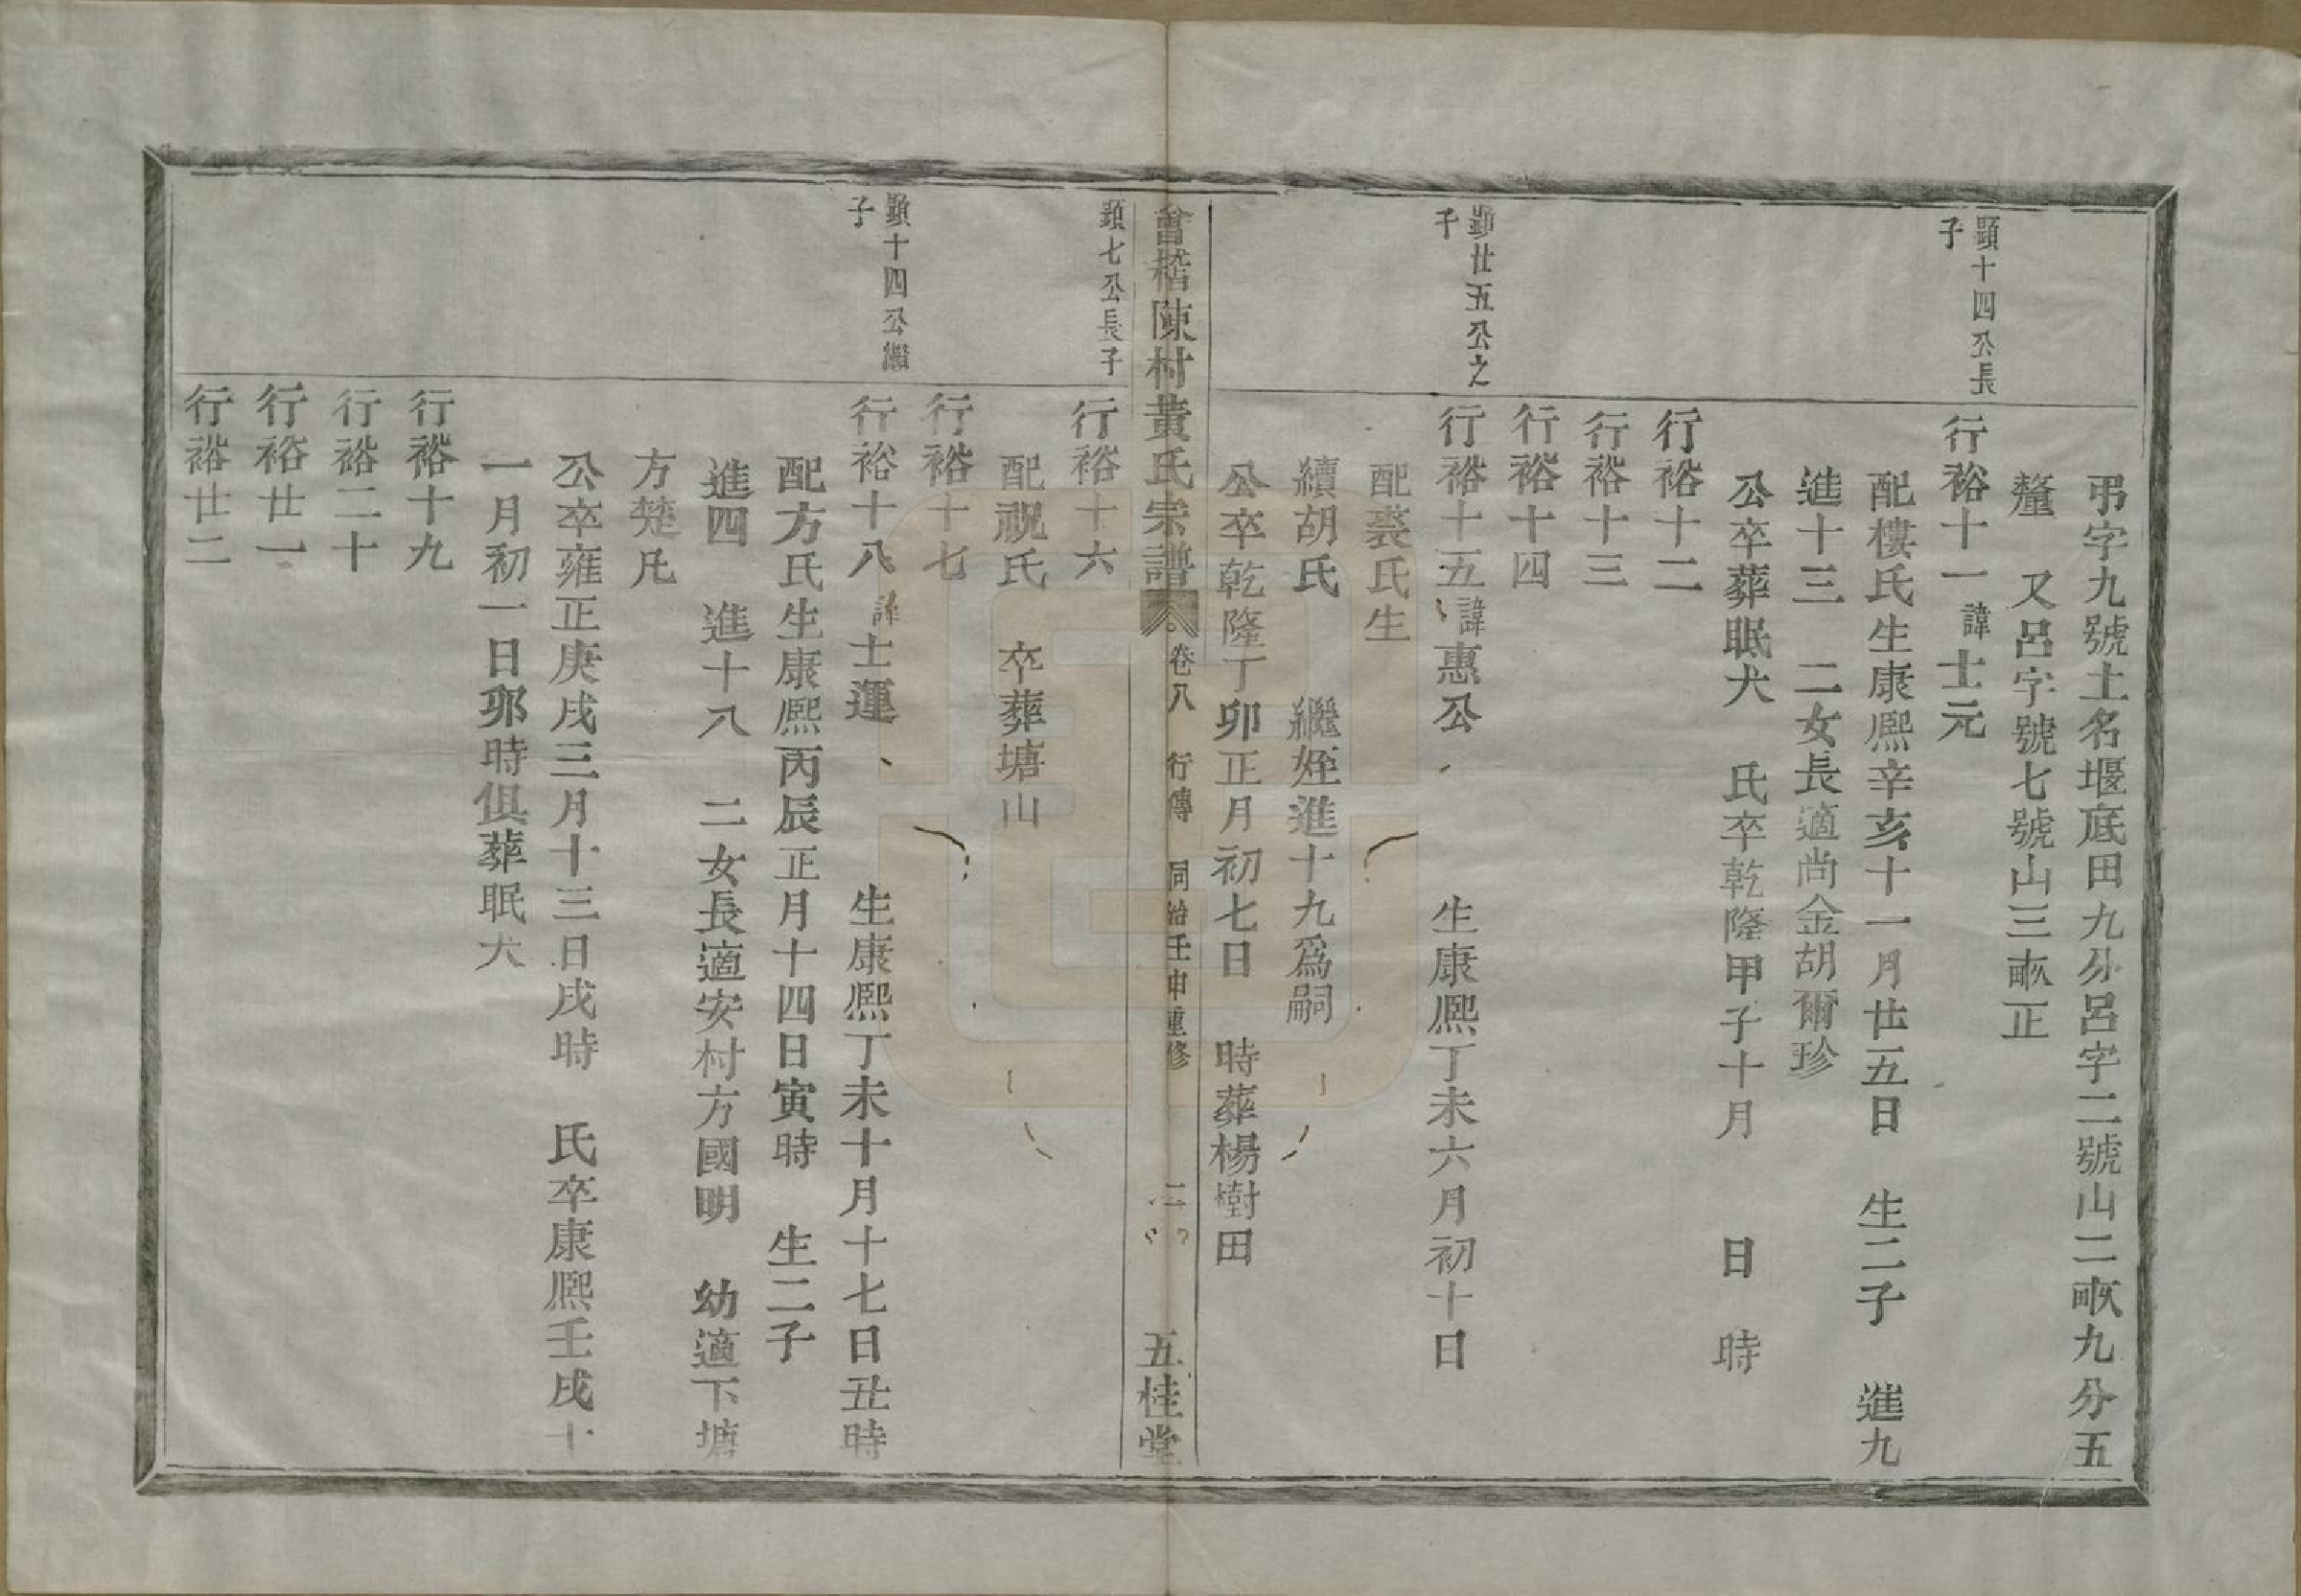 弔字九號土名堰底田九分呂字二號山二畝九分五
釐　又呂字號七號山三畝正
顯十四公長
子
行裕十一諱士元
配樓氏生康熙辛亥十一月廿五日　生二子　進九
進十三　二女長適尚金胡爾珍
公卒葬眠犬　氏卒乾隆甲子十月　日　時
行裕十二
行裕十三
行裕十四
顯廿五公之
子
行裕十五諱惠公　生康熙丁未六月初十日
配裘氏生
續胡氏　繼姪進十九爲嗣
公卒乾隆丁卯正月初七日　時葬楊樹田
會稽陳村黃氏宗譜　卷八　行傳　同治壬申重修　二　五桂堂
顯七公長子
行裕十六
配祝氏　卒葬塘山
行裕十七
顯十四公繼
子
行裕十八諱士運　生康熙丁未十月十七日丑時
配方氏生康熙丙辰正月十四日寅時　生二子
進四　進十八　二女長適安村方國明　幼適下塘
方楚凡
公卒雍正庚戌三月十三日戌時　氏卒康熙壬戌十
一月初一日卯時俱葬眠犬
行裕十九
行裕二十
行裕廿一
行裕廿二